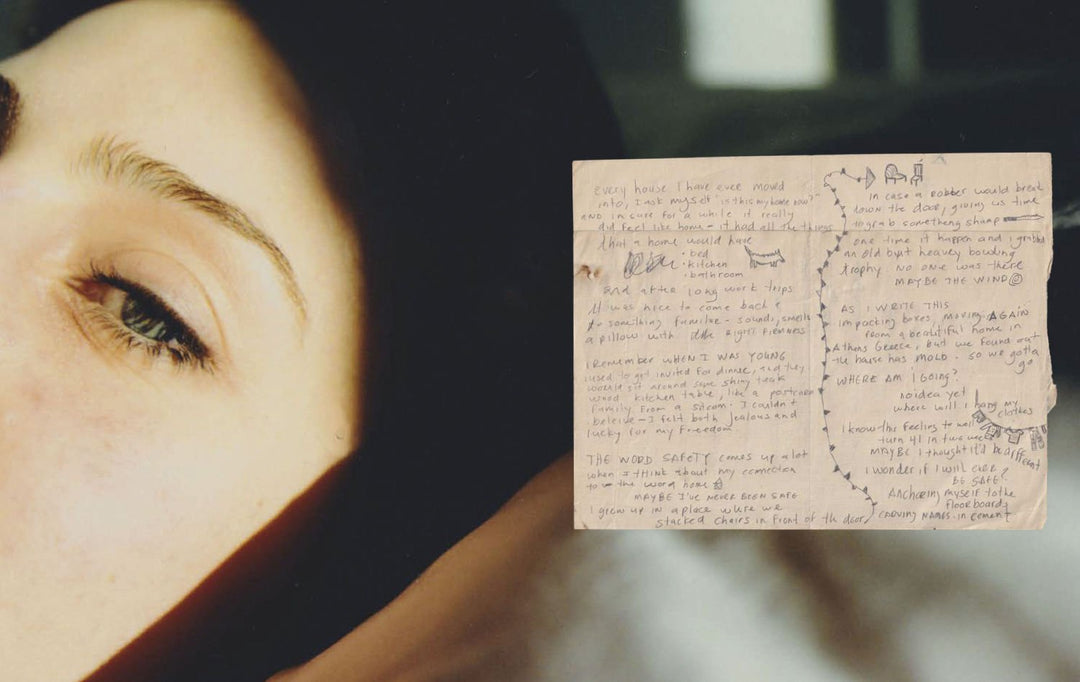 every house I have ever moved
into, I ask myself "is this my home now?"
AND in cure for a while it really
did feel like home - it had all the things
that a home would have
• bed
• kitchen
• bathroom
and after long work trips
It was nice to come back
to something familar - sounds, smells
a pillow with the RIGHT FIRMNESS
I REMEMBER WHEN I WAS YOUNG
I used to get invited for dinner, and they
would sit around some shiny teak
wood kitchen table, like a postcard
family from a sitcom. I couldn't
beleive - I felt both jealous and
lucky for my freedom
THE WORD SAFETY comes up a lot
when I THINK about my connection
to the word home
MAYBE I'VE NEVER BEEN SAFE
I grew up in a place where we
stacked chairs in front of th door
in case a robber would break
down the door, giving us time
to grab something sharp
one time it happen and i grabbed
an old but heavy bowling
trophy NO ONE was there
MAYBE THE WIND
AS I WRITE THIS
im packing boxes, moving AGAIN
from a beautiful home in
Athens Greece, but we found out
the house has MOLD. so we gotta
go
WHERE AM I GOING?
no idea yet
where will I hang my
clothes
I know this feeling to well
turn 41 in two weeks
MAYBE I thought it'd be different
I wonder if I will ever
BE SAFE?
Anchoring myself to the
floorboards
CARVING NAMES in cement